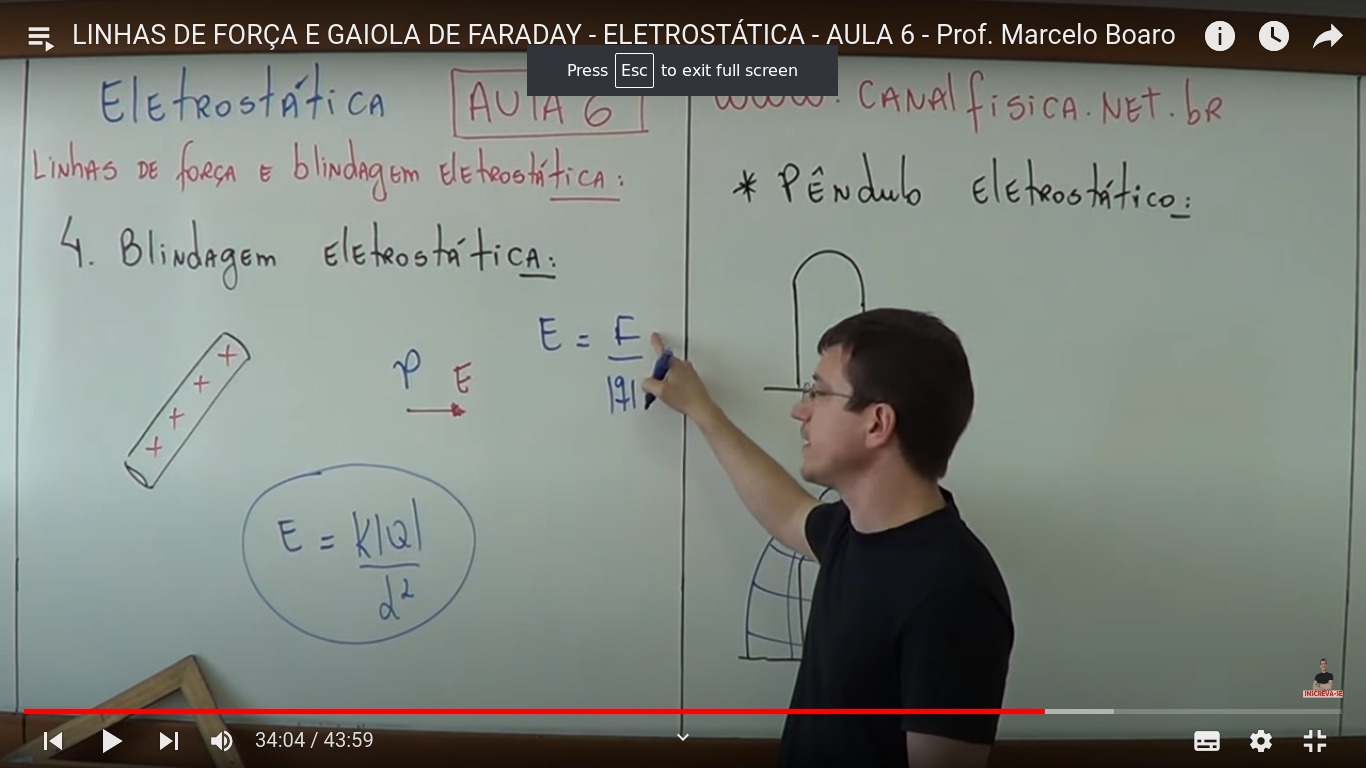 LINHAS DE FORÇA E GAIOLA DE FARADAY - ELETROSTÁTICA - AULA 6 - Prof. Marcelo Boaro
Press Esc to exit full screen
Eletrostática AULA 6
Linhas de força e blindagem eletrostática:
4. Blindagem eletrostática:
+
+
+
+
P E
E = F
|q|
E = K|Q|
d²
www.canalfisica.net.br
* Pêndulo eletrostático:
INSCREVA-SE
34:04 / 43:59